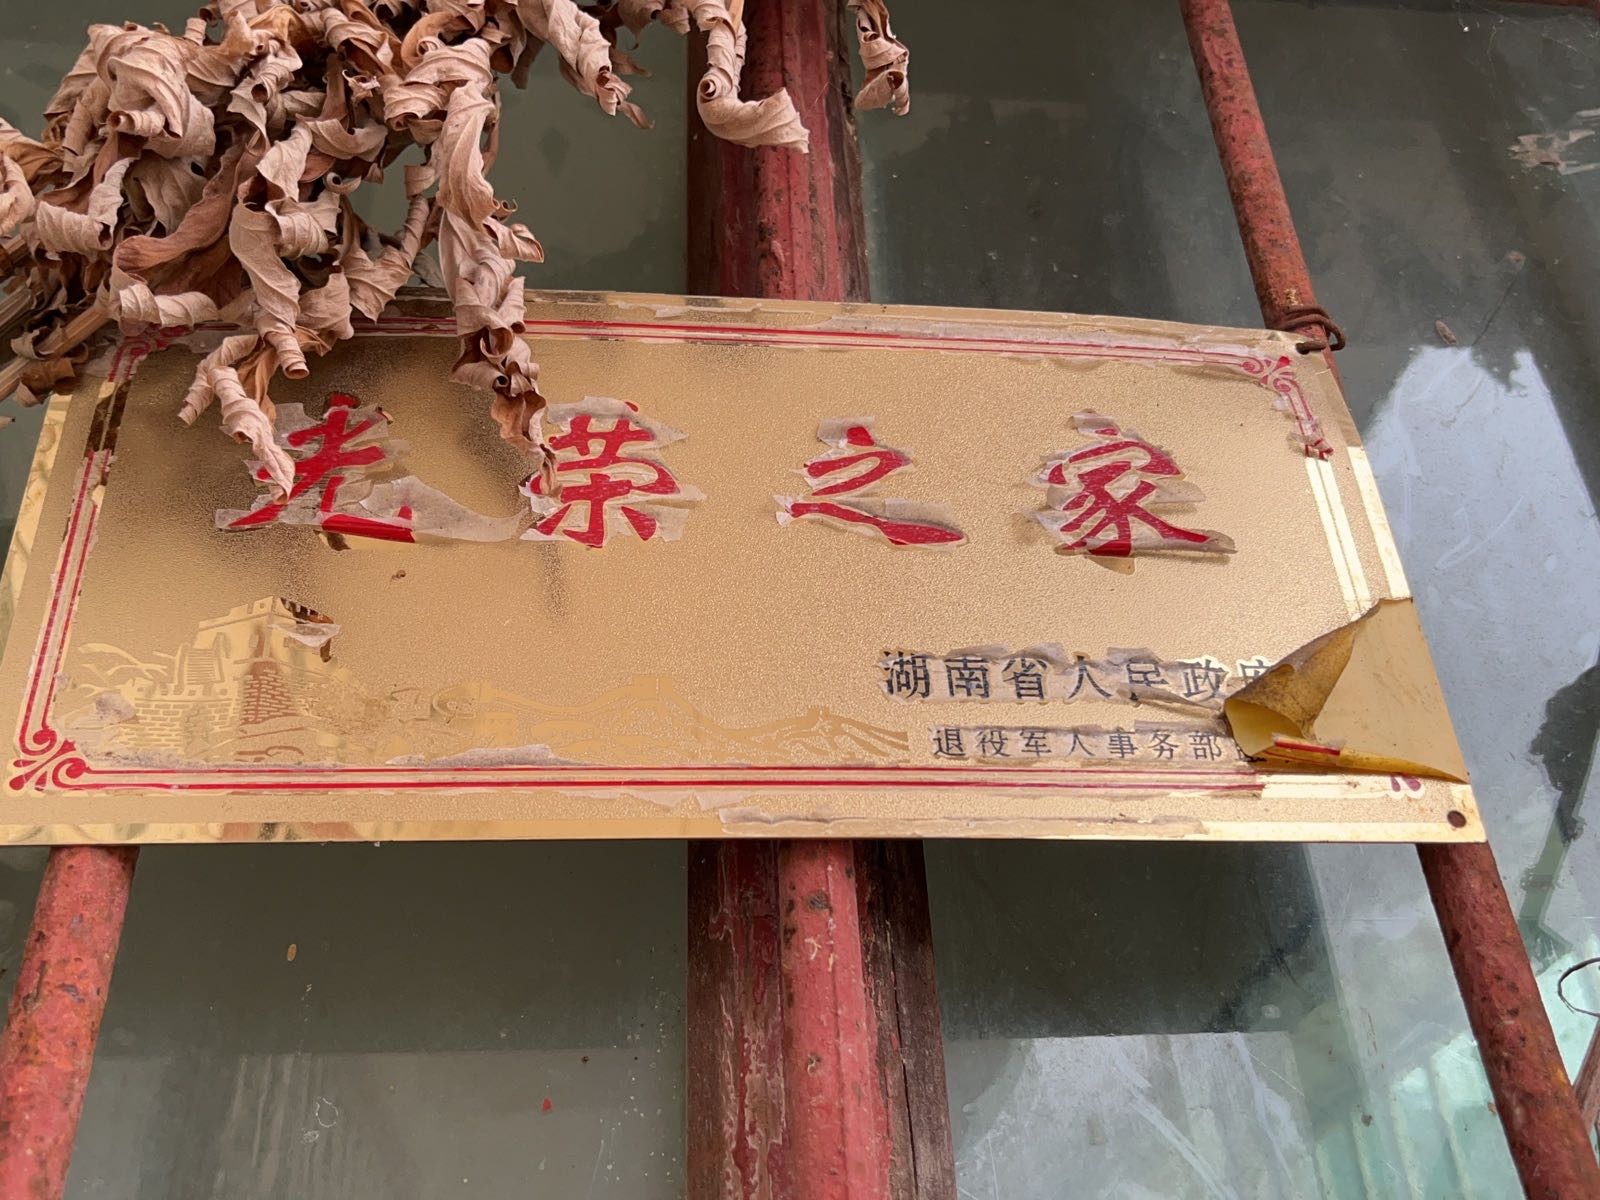 光荣之家
湖南省人民政府
退役军人事务部